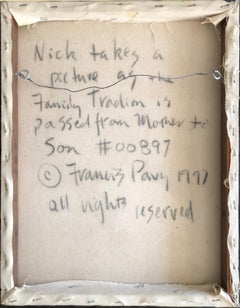 Nick takes a
picture as the
Family Tradion is
passed from Mother to
Son #00897
© Francis Pavy 1997
all rights reserved